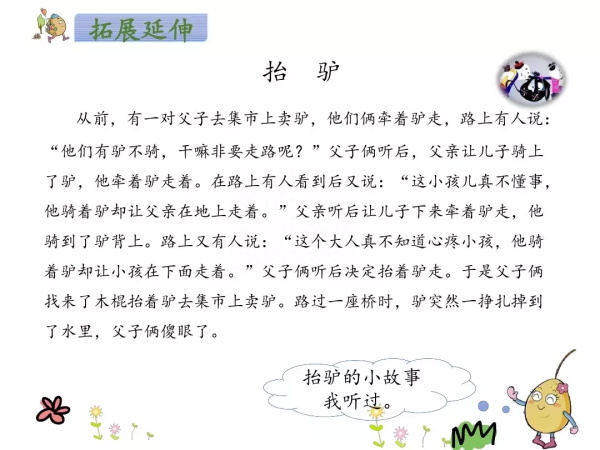 拓展延伸
抬 驴
从前，有一对父子去集市上卖驴，他们俩牵着驴走，路上有人说：
“他们有驴不骑，干嘛非要走路呢？”父子俩听后，父亲让儿子骑上
了驴，他牵着驴走着。在路上有人看到后又说：“这小孩儿真不懂事，
他骑着驴却让父亲在地上走着。”父亲听后让儿子下来牵着驴走，他
骑到了驴背上。路上又有人说：“这个大人真不知道心疼小孩，他骑
着驴却让小孩在下面走着。”父子俩听后决定抬着驴走。于是父子俩
找来了木棍抬着驴去集市上卖驴。路过一座桥时，驴突然一挣扎掉到
了水里，父子俩傻眼了。
抬驴的小故事
我听过。